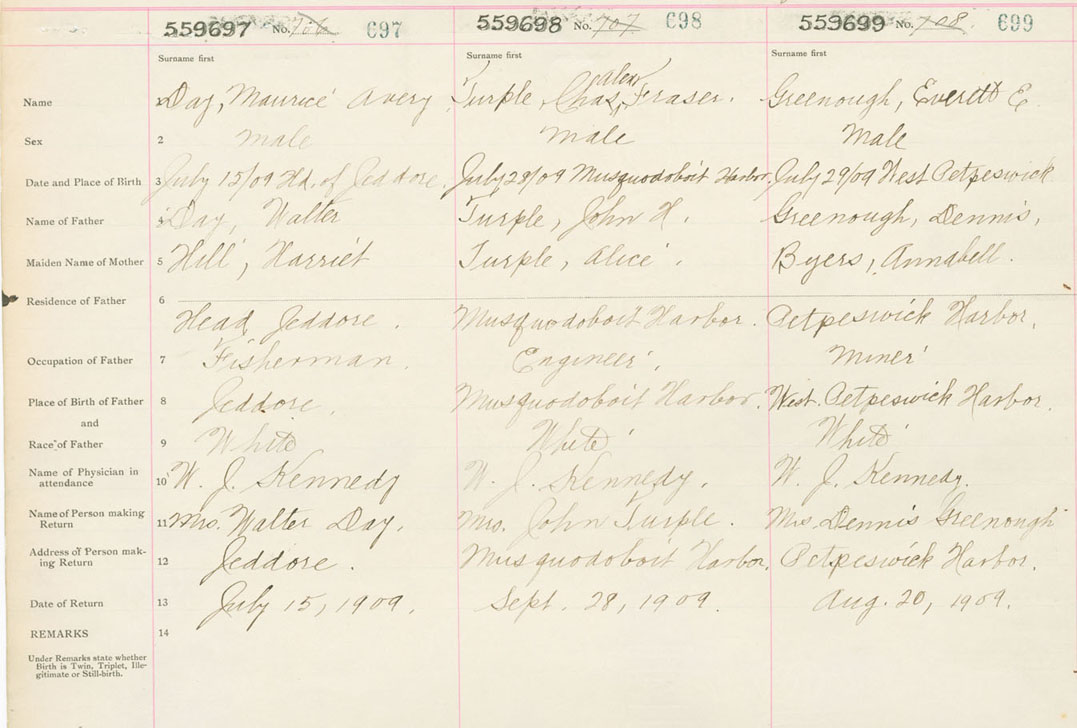 559697 No. 706 697 559698 No. 707 698 559699 No. 708. 699
Surname first Surname first Surname first
Alex
Name 1 Day, Maurice Avery Turple, Chas, Fraser. Greenough, Everett E
Sex 2 male male Male
Date and Place of Birth 3 July 15/09 Hd. of Jeddore. July 29/09 Musquodoboit Harbor. July 29/09 West Petpeswick
Name of Father 4 Day, Walter Turple, John H. Greenough, Dennis,
Maiden Name of Mother 5 Hill, Harriet Turple, Alice. Byers, Annabell.
Residence of Father 6
Head Jeddore. Musquodoboit Harbor. Petpeswick Harbor.
Occupation of Father 7 Fisherman. Engineer. Miner
Place of Birth of Father 8 Jeddore. Musquodoboit Harbor. West. Petpeswick Harbor.
and
Race of Father 9 White White White
Name of Physician in
attendance 10 W. J. Kennedy W. J. Kennedy. W. J. Kennedy.
Name of Person making
Return 11 Mrs. Walter Day. Mrs. John Turple. Mrs. Dennis Greenough
Address of Person mak-
ing Return 12 Jeddore. Musquodoboit Harbor. Petpeswick Harbor.
Date of Return 13 July 15, 1909. Sept. 28, 1909. Aug. 20, 1909.
REMARKS 14
Under Remarks state whether
Birth is Twin, Triplet, Ille-
gitimate or Still-birth.